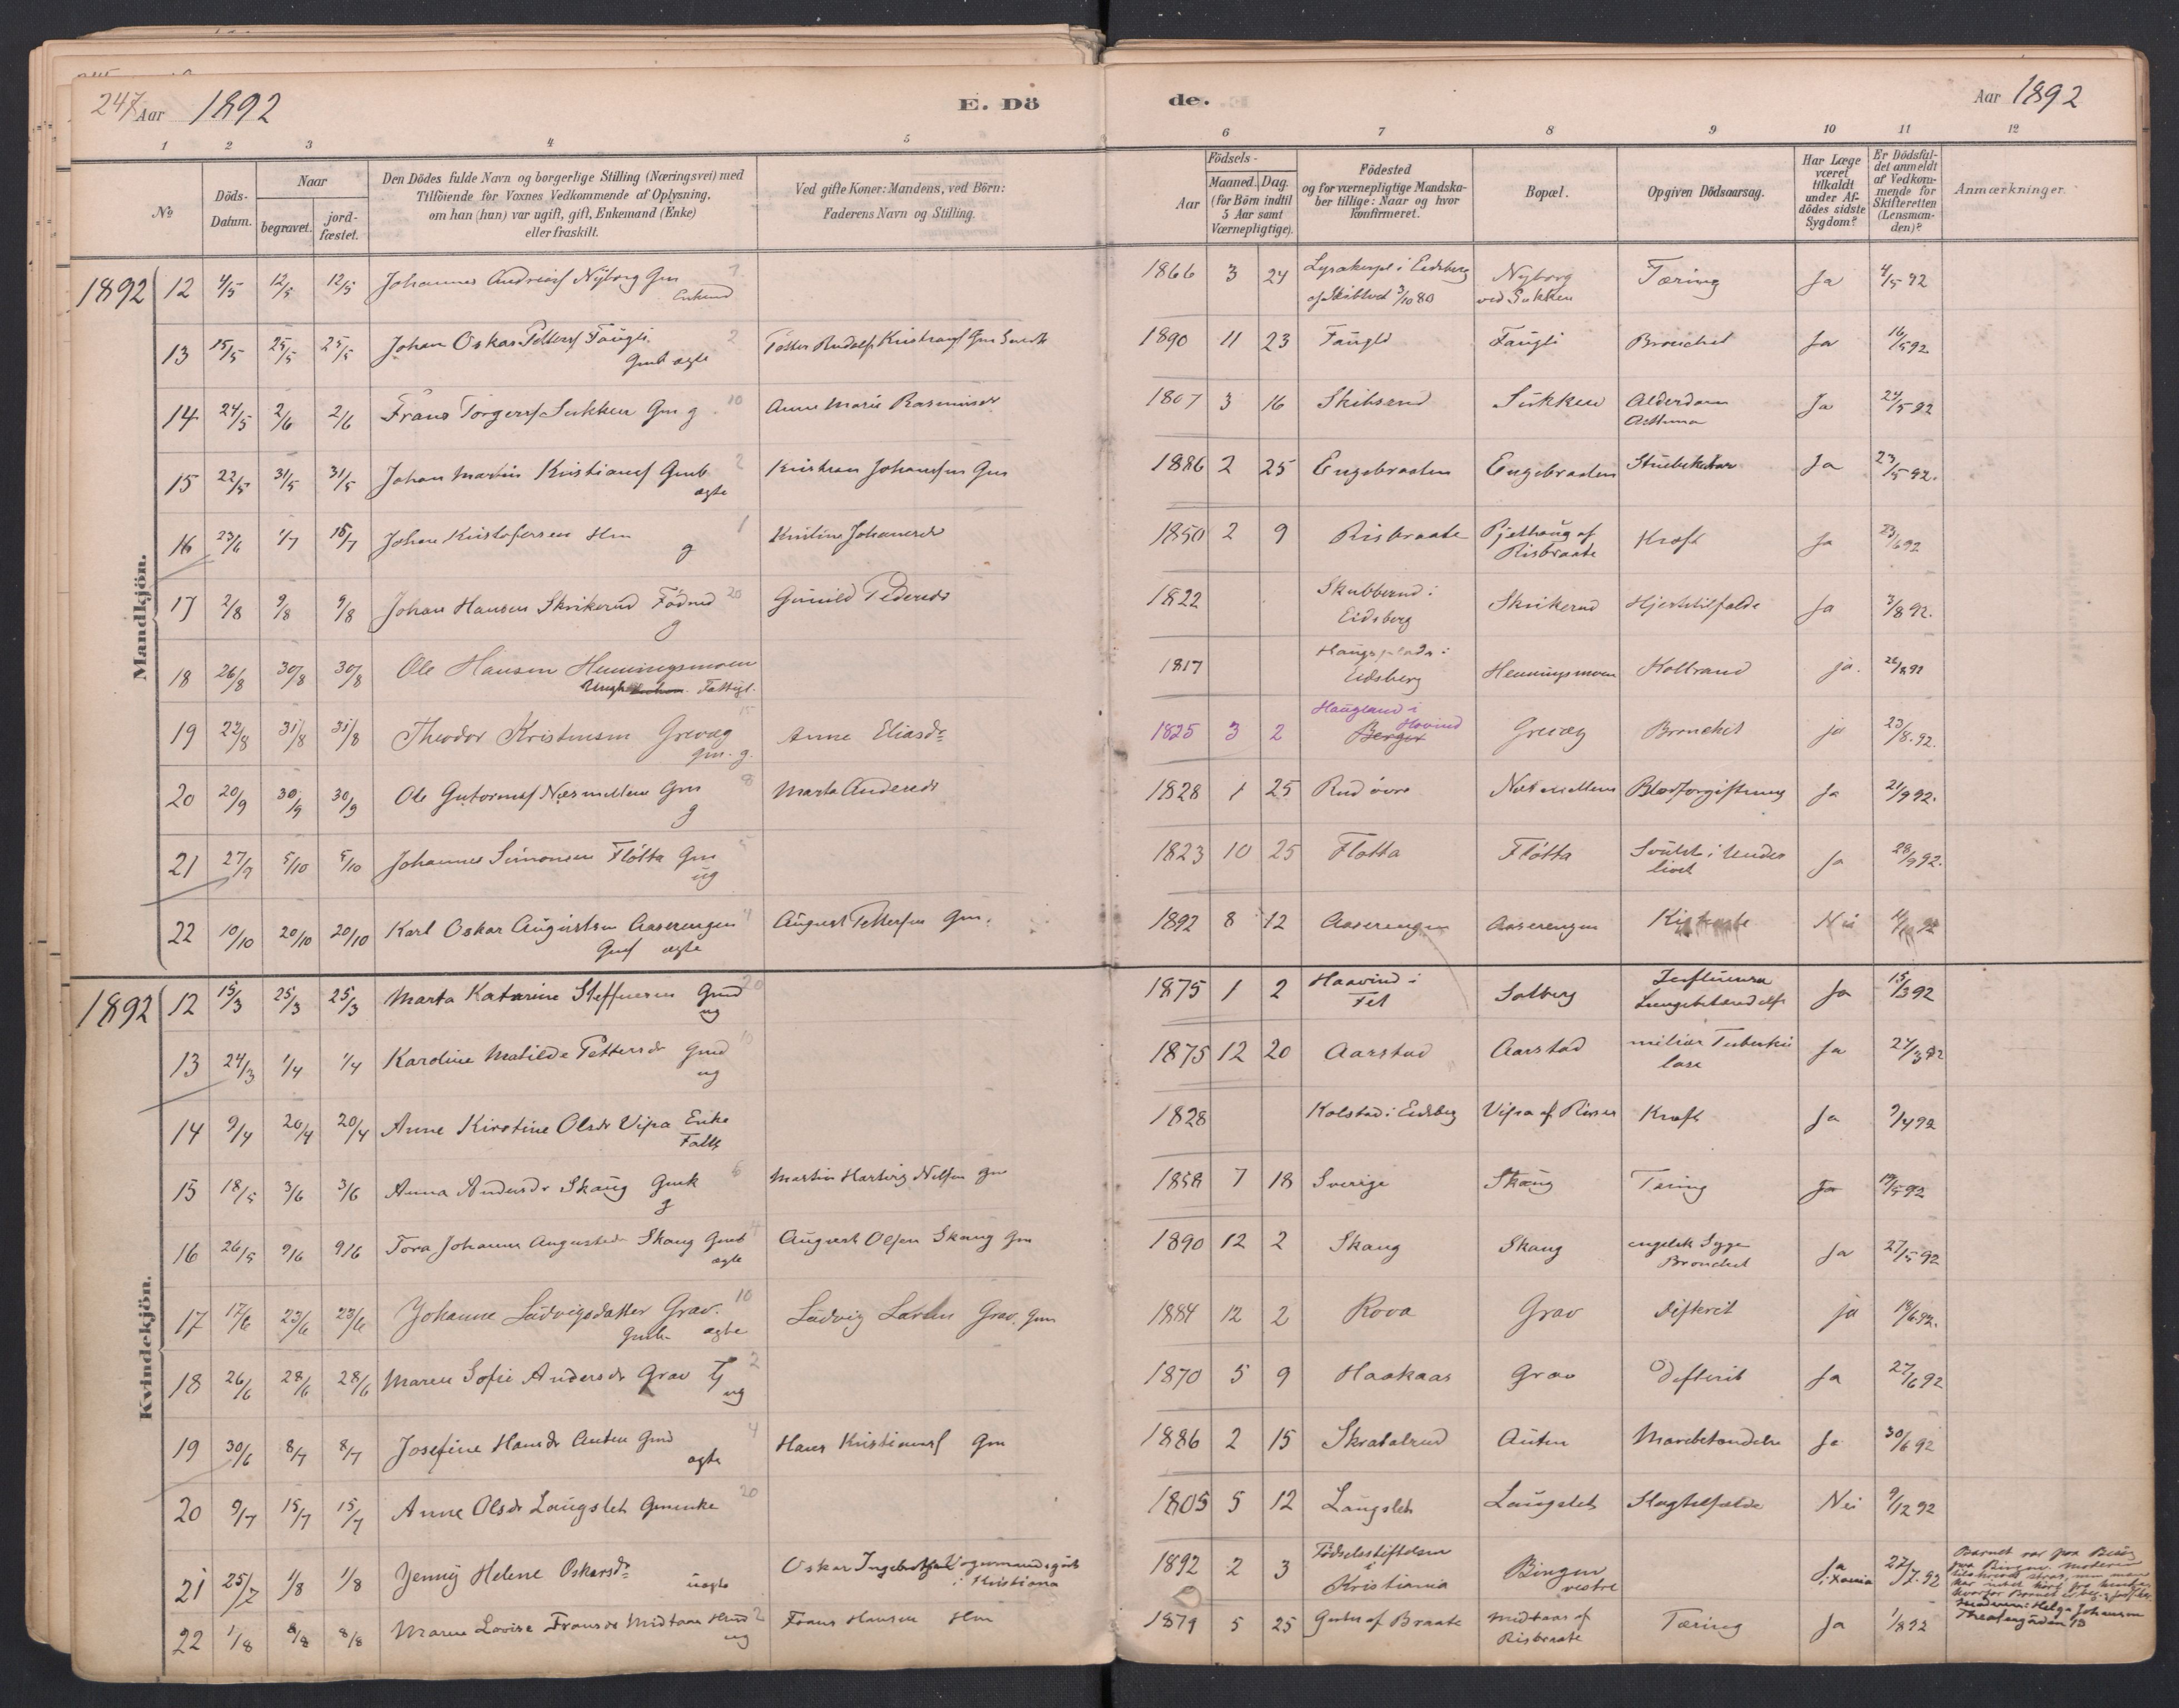 247 Aar 1892
E. Dö
de.
Aar 1892
1 2 3 4 5 6 7 8 9 10 11 12
No
Döds-Datum.
Naar
begravet.
jord-fæstet.
Den Dödes fulde Navn og borgerlige Stilling (Næringsvei) med
Tilföiende for Voxnes Vedkommende af Oplysning,
om han (hun) var ugift, gift, Enkemand (Enke)
eller fraskilt.
Ved gifte Koner: Mandens, ved Börn:
Faderens Navn og Stilling.
Födsels-
Aar
Maaned. Dag.
(for Börn indtil
5 Aar samt
Værnepligtige).
Födested
og for værnepligtige Mandska-
ber tillige: Naar og hvor
konfirmeret.
Bopæl.
Opgiven Dödsaarsag.
Har Læge
været
tilkaldt
under Af-
dödes sidste
Sygdom?
Er Dödsfal-
det anmeldt
af Vedkom-
mende for
Skifteretten
(Lensman-
den)?
Anmærkninger.
Mandkjön.
1892 12 4/5 12/5 12/5 Johannes Nyborg Gm 1866 3 24 i Eidsberg Nyborg Tæring Ja 4/5 92
af Skibtvet 3/10 80 ved Sukken
13 15/5 25/5 25/5 Johan Oskar Petters Faugli 2 Petter Rudolf 1890 11 23 Faugli Faugli Bronchit Ja 16/5 92
Gmb ægte
14 24/5 2/6 2/6 Frans Torgers Sukken Gm g 10 Anne Marie Rasmusdr 1807 3 16 Sukken Alderdom Ja 24/5 92
Asthma
15 22/5 31/5 31/5 Johan Martin Kristians Gmb 2 Kristian Johansen Gm 1886 2 25 Engebraaten Engebraaten Ja 23/5 92.
ægte
16 23/6 1/7 15/7 Johan Kristofersen Hm 1 Kristine Johannesdr 1850 2 9 Risbraate af Kræft Ja 23/6 92
g Risbraate
17 2/8 9/8 9/8 Johan Hansen Skrikerud Födrd 20 Gunild Pedersdr 1822 Skubberud i Skrikerud Hjertetilfælde Ja 3/8 92.
g Eidsberg
18 26/8 30/8 30/8 Ole Hansen Henningsmoen 1817 Henningsmoen Kolbrand ja. 26/8 92
Fattigl. Eidsberg
19 22/8 31/8 31/8 Theodor Kristensen Grevæg 15 Anne Eliasdr 1825 3 2 Haugland i Hovind Grevæg Bronchit ja 23/8 92.
gm. g. Berger
20 20/9 30/9 30/9 Ole Gutorms Næsmellem Gm 8 Marta Andersdr 1828 1 25 Rud övre Næsmellem Blodforgiftning Ja 21/9 92.
g
21 27/9 5/10 5/10 Johannes Simonsen Flötta Gm 5 1823 10 25 Flotta Flötta Svulst i Under Ja 28/9 92.
ug livet
22 10/10 20/10 20/10 Karl Oskar Augustsen Aaserengen 4 August Pettersen Gm. 1892 8 12 Aaserengen Aaserengen Nei
Gms ægte
Kvindekjön.
1892 12 15/3 25/3 25/3 Marta Katarine Steffensen Gmd 20 1875 1 2 Haavind i Solberg Influensa Ja 15/3 92
ug Fet Lungebetændelse
13 24/3 1/4 1/4 Karoline Matilde Pettersdr Gmd 10 1875 12 20 Aarstad Aarstad miliær Tuberku Ja 24/3 92
ug lose
14 9/4 20/4 20/4 Anne Kirstine Olsdr Vipa Enke 1828 Kolstad i Eidsberg Vipa af Kræft Ja 9/4 92
Fattl
15 18/5 3/6 3/6 Anna Andersdr Skaug Gmk 5 Martin Hartvig Nilsen Gm 1858 7 18 Sverige Skaug Tæring Ja 19/5 92
g
16 26/5 9/6 9/6 Tora Johanne Augustsdr Skaug Gmb 4 August Olsen Skaug Gm 1890 12 2 Skaug Skaug engelsk Syge Ja 27/5 92
ægte Bronchit
17 17/6 23/6 23/6 Johanne Ludvigsdatter Grav. 10 Ludvig Larsen Grav. Gm 1884 12 2 Rova Grav Difterit ja 18/6 92.
Gmb ægte
18 26/6 28/6 28/6 Maren Sofie Andersdr Grav Tj 2 1870 5 9 Haakaas Grav Difterit Ja 27/6 92
ug
19 30/6 8/7 8/7 Josefine Hansdr Auten Gmd 4 Hans Kristians Gm 1886 2 15 Skratalrud Auten Mavebetændelse Ja 30/6 92
ægte
20 9/7 15/7 15/7 Anne Olsdr Laugslet Gmenke 20 1805 5 12 Laugslet Laugslet Slagtilfælde Nei 9/12 92
21 25/7 1/8 1/8 Jenny Helene Oskarsdr Oskar 1892 2 3 Födselsstiftelsen Bingen Ja 27/7 92 Barnet var paa
uægte i Kristiania i vestre i Xania
Kristiania
Helga Johansen
22 1/8 8/8 8/8 Maren Lovise Fransdr Midtaas Hmd 2 Frans Hansen Hm 1879 5 25 af Braate Midtaas af Tæring Ja 1/8 92
ug Risbraate